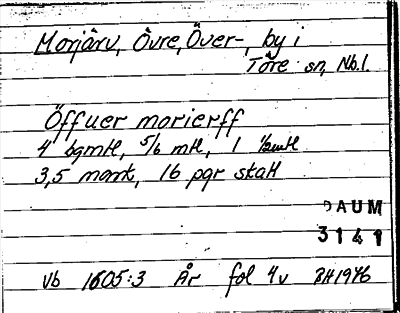 Morjärv, Övre, Över-, by i
Töre sn, Nb.l.
Öffuer morierff
4 bgmtl, 5/6 mtl, 1 1/2mtl
3,5 mark, 16 pgr skatt
DAUM
3141
Vb 1605:3 År fol 4v BH1946